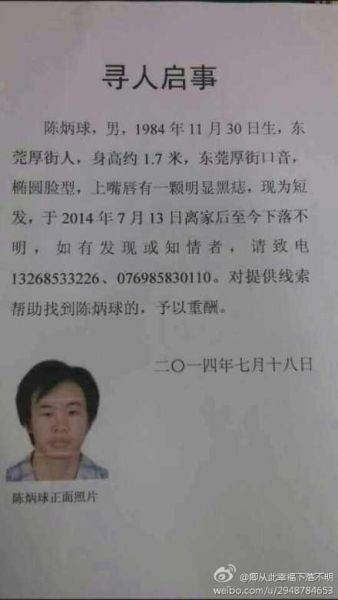 寻人启事
陈炳球，男，1984年11月30日生，东
莞厚街人，身高约1.7米，东莞厚街口音，
椭圆脸型，上嘴唇有一颗明显黑痣，现为短
发，于2014年7月13日离家后至今下落不
明，如有发现或知情者，请致电
13268533226、076985830110。对提供线索
帮助找到陈炳球的，予以重酬。
二〇一四年七月十八日
陈炳球正面照片
@卿从此幸福下落不明
weibo.com/u/2948784653